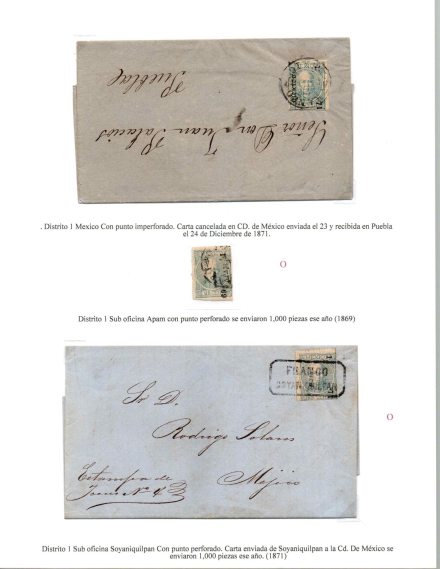 Señor Don Juan Palacios
Puebla
. Distrito 1 Mexico Con punto imperforado. Carta cancelada en CD. de México enviada el 23 y recibida en Puebla
el 24 de Diciembre de 1871.
O
Distrito 1 Sub oficina Apam con punto perforado se enviaron 1,000 piezas ese año (1869)
FRANCO
Sr D.
Rodrigo Solans
Mejico
Estampa de
O
Distrito 1 Sub oficina Soyaniquilpan Con punto perforado. Carta enviada de Soyaniquilpan a la Cd. De México se
enviaron 1,000 piezas ese año. (1871)